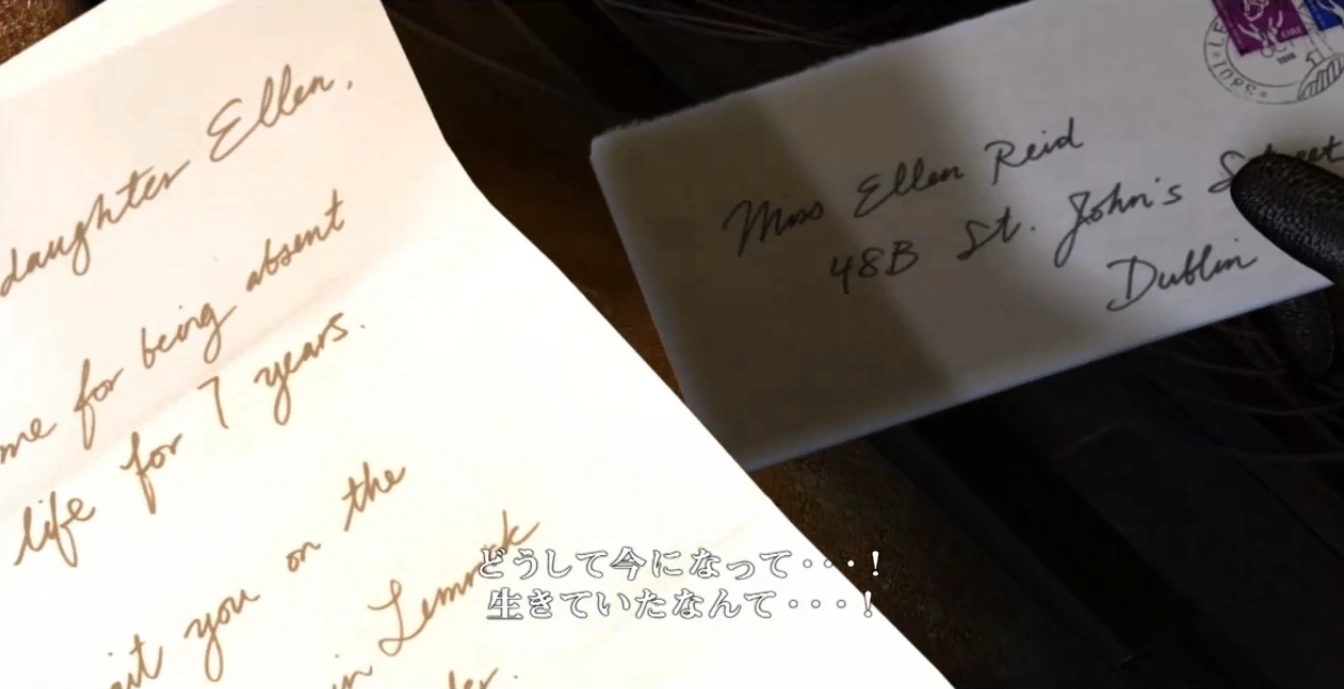 daughter Ellen,
me for being absent
life for 7 years.
you on the
in Lemrick
Miss Ellen Reid
48B St. John's Street
Dublin
どうして今になって・・・！
生きていたなんて・・・！